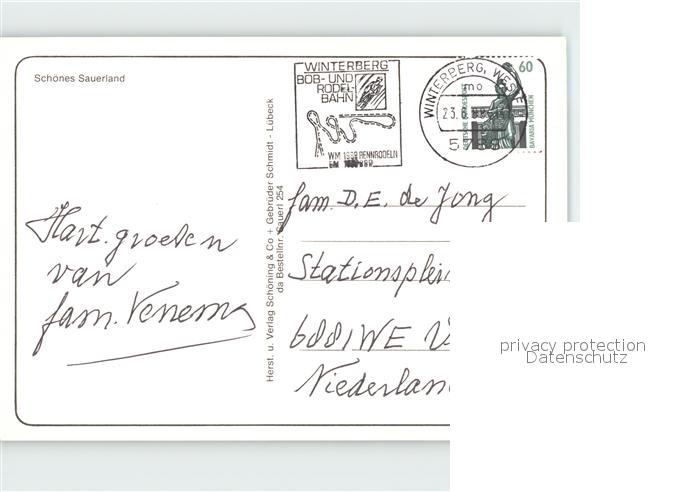 Schönes Sauerland
WINTERBERG
BOB- UND
RODEL-
BAHN
WM 1989 RENNRODELN
WINTERBERG, WESTF
mo
23.6.
60
DEUTSCHE BUNDESPOST
BAVARIA MÜNCHEN
Herst. u. Verlag Schöning & Co + Gebrüder Schmidt - Lübeck
da Bestellnr. Sauerl 254
Hart. groeten
van
fam. Venema
fam. D.E. de Jong
Stationsplein
6881WE
Niederlan
privacy protection
Datenschutz